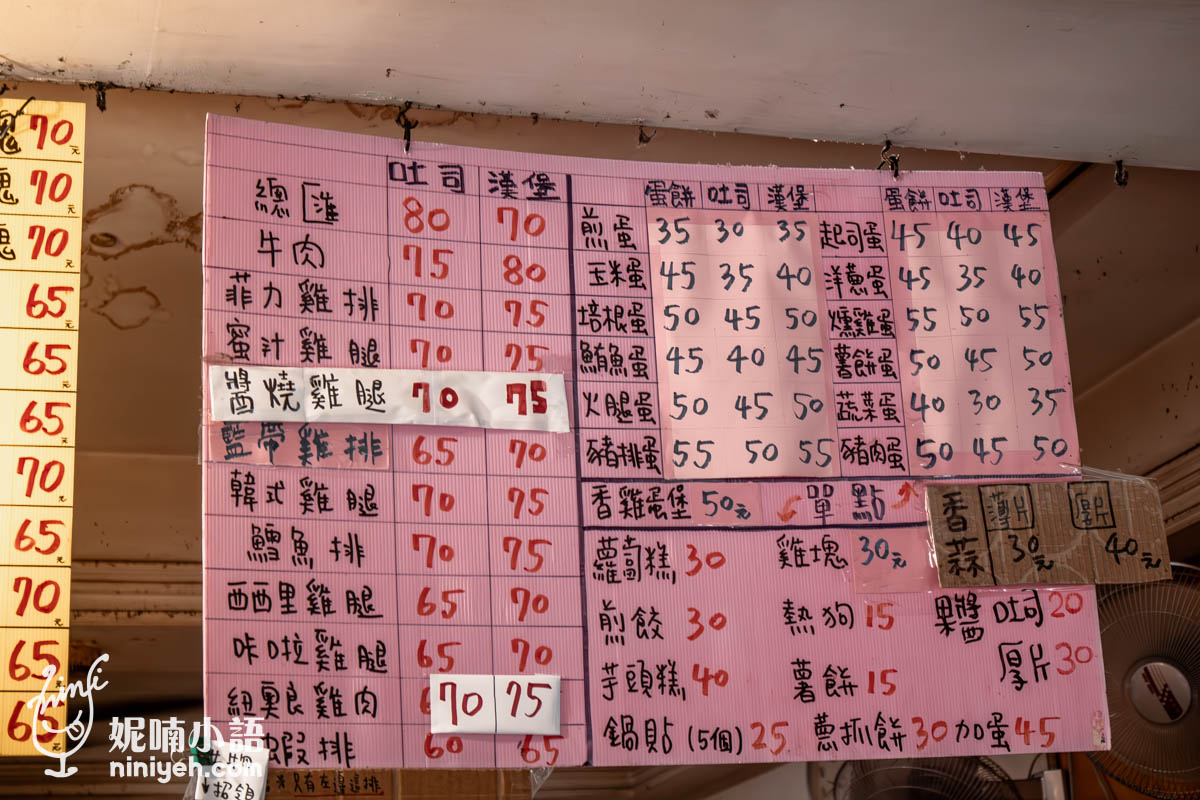 70元
70元
70元
65元
65元
65元
70元
65元
70元
65元
65元
吐司 漢堡
總匯 80 70
牛肉 75 80
菲力雞排 70 75
蜜汁雞腿 70 75
醬燒雞腿 70 75
藍帶雞排 65 70
韓式雞腿 70 75
鱈魚排 70 75
西西里雞腿 65 70
咔啦雞腿 65 70
紐奧良雞肉 70 75
蝦排 60 65
蛋餅 吐司 漢堡
煎蛋 35 30 35
玉米蛋 45 35 40
培根蛋 50 45 50
鮪魚蛋 45 40 45
火腿蛋 50 45 50
豬排蛋 55 50 55
蛋餅 吐司 漢堡
起司蛋 45 40 45
洋蔥蛋 45 35 40
燻雞蛋 55 50 55
薯餅蛋 50 45 50
蔬菜蛋 40 30 35
豬肉蛋 50 45 50
香雞蛋堡 50元
單點
香蒜 薄片 30元 厚片 40元
蘿蔔糕 30 雞塊 30元
煎餃 30 熱狗 15 果醬 吐司 20
芋頭糕 40 薯餅 15 厚片 30
鍋貼(5個) 25 蔥抓餅 30 加蛋 45
只有在這這排
妮喃小語
niniyeh.com